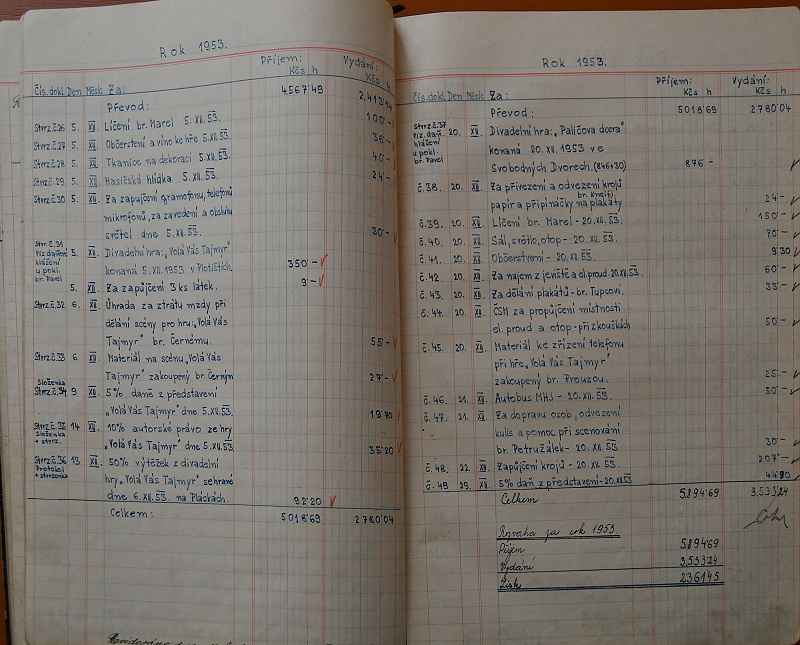 Rok 1953.
Příjem: Vydání:
Čís.dokl. Den Měsíc Za: Kčs h Kčs h
Převod: 4567'49 2.413'14
Stvrz.č.26 5. XII. Líčení br. Marel 5.XII.53. 100'-
Stvrz.č.27 5. XII. Občerstvení a víno ke hře 5.XII.53. 36'-
Stvrz.č.28 5. XII. Tkanice na dekoraci 5.XII.53. 40'-
Stvrz.č.29 5. XII. Hasičská hlídka 5.XII.53. 24'-
Stvrz.č.30 5. XII. Za zapůjčení gramofonu, telefonu
mikrofonů, za zavedení a obsluhu
světel dne 5.XII.53. 30'-
Stvr. č.31
Viz daň. hlášení u pokl. br. Pavel 5. XII. Divadelní hra: „Volá Vás Tajmyr"
konaná 5.XII.1953 v Plotištích. 350'-
5. XII. Za zapůjčení 3 ks látek. 9'-
Stvrz.č.32 6. XII. Úhrada za ztrátu mzdy při
dělání scény pro hru: „Volá Vás
Tajmyr" br. Černému. 55'-
Stvrz.č.33 6 XII. Materiál na scénu „Volá Vás
Tajmyr" zakoupený br. Černým 27'-
Složenka
Stvrz.č.34 9 XII. 5% daně z představení
„Volá Vás Tajmyr" dne 5.XII.53. 19'70
Stvrz.č.35 14 XII. 10% autorské právo ze hry
Složenka + stvrz. „Volá Vás Tajmyr" dne 5.XII.53. 35'20
Stvrz.č.36 13 XII. 50% výtěžek z divadelní
Protokol + stvrzenka hry „Volá Vás Tajmyr" sehrané
dne 6.XII.53. na Pláckách. 92'20
Celkem: 5018'69 2780'04
Rok 1953.
Příjem: Vydání:
Čís.dokl. Den Měsíc Za: Kčs h Kčs h
Převod: 5018'69 2780'04
Stvrz č.37
Viz. daň. hlášení u pokl. br. Pavel 20. XII. Divadelní hra: „Paličova dcera"
konaná 20.XII.1953 ve
Svobodných Dvorech. (846+30) 876'-
č.38. 20. XII. Za přivezení a odvezení krojů
br. Knejfl.
papír a připínáčky na plakáty 24'-
č.39. 20. XII. Líčení br. Marel - 20.XII.53. 150'-
č.40. 20. XII. Sál, světlo, otop - 20.XII.53. 70'-
č.41. 20. XII. Občerstvení - 20.XII.53. 9'30
č.42. 20. XII. Za najem z jeviště a el.proud. 20.XII.53. 60'-
č.43. 20. XII. Za dělání plakátů - br. Tupcovi 33'-
č.44. 20. XII. ČSM za propůjčení místnosti
el. proud a otop - při zkouškách 50'-
č.45. 20. XII. Materiál ke zřízení telefonu
při hře „Volá Vás Tajmyr"
zakoupený br. Prouzou. 25'-
č.46. 21. XII. Autobus MHJ - 20.XII.53. 30'-
č.47. 21. XII. Za dopravu osob, odvezení
kulis a pomoc při scenování
br. Petružálek - 20.XII.53 30'-
č.48. 22. XII. Zapůjčení krojů - 20.XII.53. 207'-
č.49 29. XII. 5% daň z představení - 20.XII.53 44'90
Celkem 5.894'69 3.533'24
Rozvaha za rok 1953.
Příjem 5.894'69
Vydání 3.533'24
Zisk 2.361'45